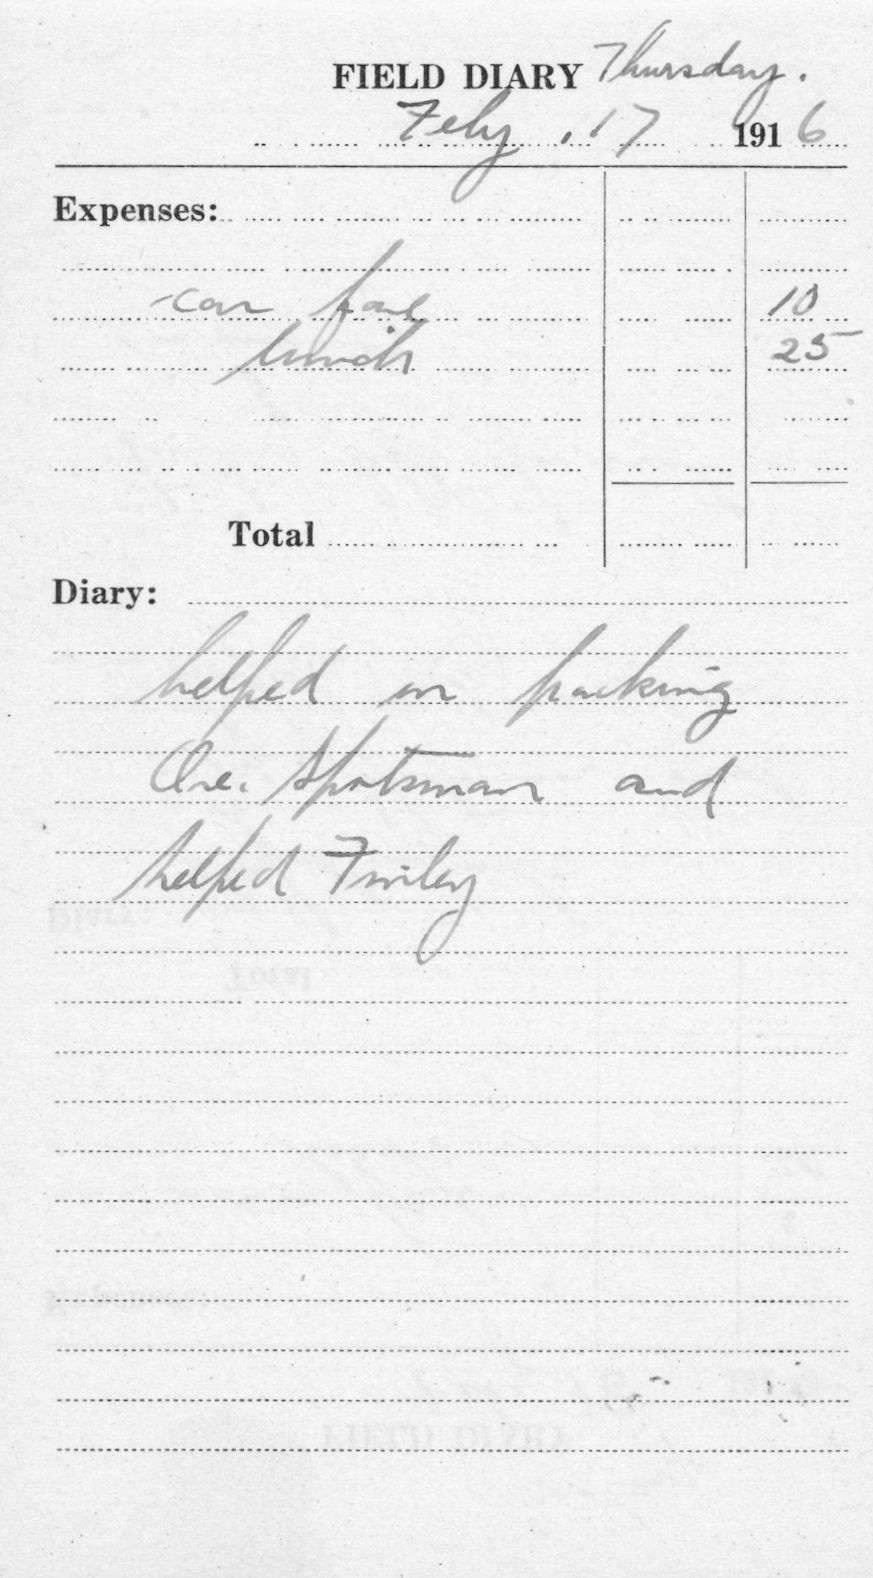 FIELD DIARY Thursday.
Feby. 17 1916
Expenses:
car fare 10
lunch 25
Total
Diary:
helped on packing
Ore. Sportsman and
helped Finley